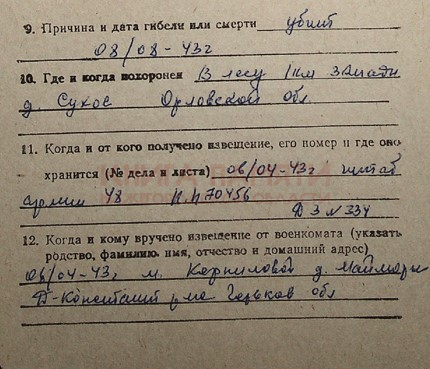 9. Причина и дата гибели или смерти убит
08/08-43г
10. Где и когда похоронен В лесу 1 км западн
д. Сухое Орловской обл
11. Когда и от кого получено извещение, его номер и где оно
хранится (№ дела и листа) 06/04-43г штаб
армии 48 П.П. 70456
Д 3 N 334
12. Когда и кому вручено извещение от военкомата (указать
родство, фамилию, имя, отчество и домашний адрес)
06/04-43г. м. Корниловой д. Маймары
Д-Констант р-на Горьков обл